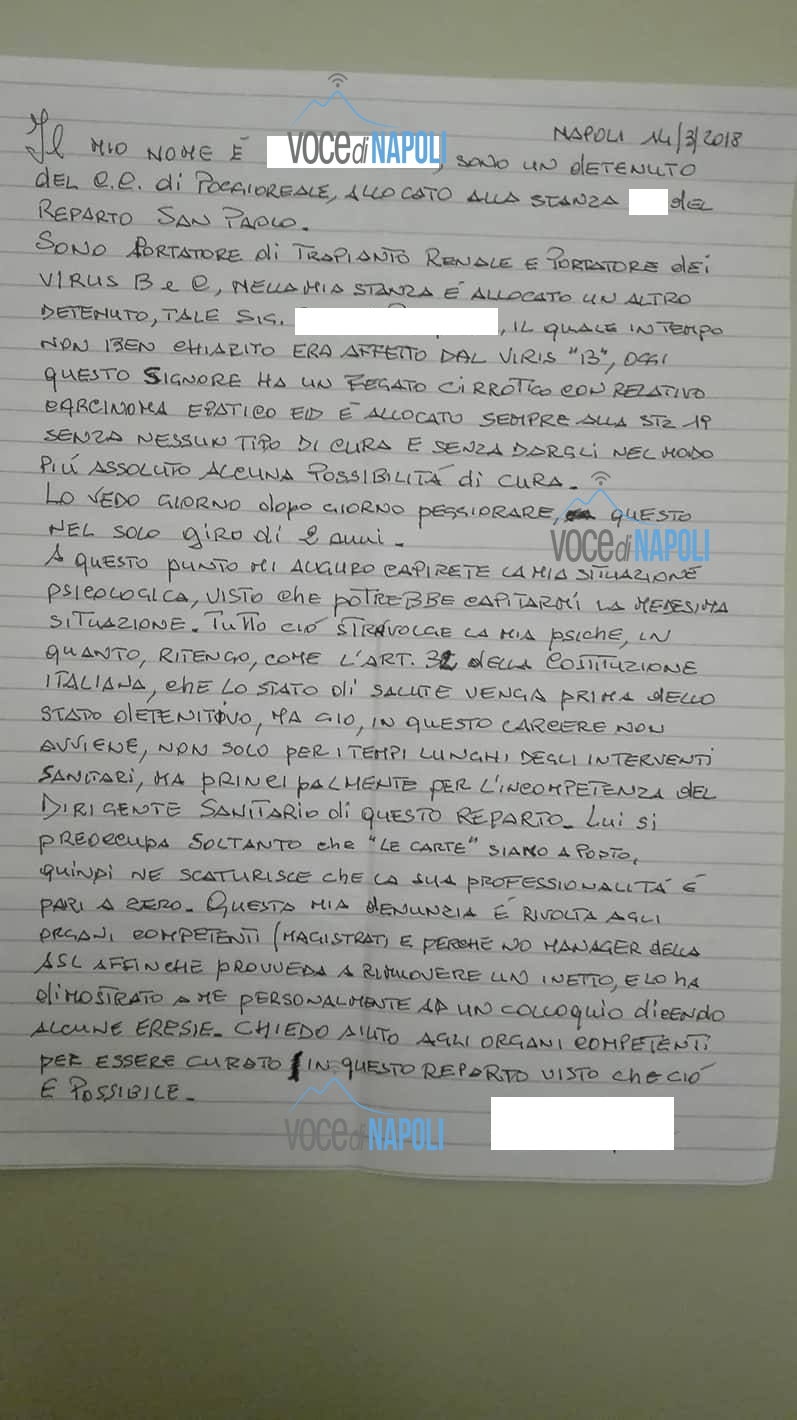 NAPOLI 14/3/2018
Il MIO NOME È VOCE di NAPOLI, SONO UN dETENUTO
dEL C.C. di POGGIOREALE, ALLOCATO ALLA STANZA dEL
REPARTO SAN PAOLO.
SONO PORTATORE di TRAPIANTO RENALE E PORTATORE dEi
VIRUS B e C, NELLA MIA STANZA É ALLOCATO UN ALTRO
DETENUTO, TALE SIG. , IL QUALE IN TEMPO
NON BEN CHIARITO ERA AFFETTO DAL VIRIS "B", OGGI
QUESTO SIGNORE HA UN FEGATO CIRROTICO CON RELATIVO
CARCINOMA EPATICO ED É ALLOCATO SEMPRE ALLA STZ 19
SENZA NESSUN TIPO DI CURA E SENZA DARGLI NEL MODO
PIÚ ASSOLUTO ALCUNA POSSIBILITÁ di CURA.
LO VEDO GIORNO dopo GIORNO PEGGIORARE, QUESTO
NEL SOLO giro di 2 anni.
VOCE di NAPOLI
A QUESTO PUNTO MI AUGURO CAPIRETE LA MIA SITUAZIONE
PSICOLOGICA, VISTO che POTREBBE CAPITARMI LA MEDESIMA
SITUAZIONE. TUTTO CIÓ STRAVOLGE LA MIA psiche, IN
QUANTO, RITENGO, COME L'ART. 32 dELLA COSTITUZIONE
ITALIANA, che LO STATO di SALUTE VENGA PRIMA dELLO
STATO dETENITIVO, MA CIO, IN QUESTO CARCERE NON
AVVIENE, NON SOLO PER I TEMPI LUNGHI DEGLI INTERVENTI
SANITARI, MA PRINCIPALMENTE PER L'INCOMPETENZA dEL
DIRIGENTE SANITARIO di QUESTO REPARTO. Lui si
PREOCCUPA SOLTANTO che "LE CARTE" SIANO A POSTO,
QUINDI NE SCATURISCE CHE LA SUA PROFESSIONALITÁ É
PARI A ZERO. QUESTA MIA dENUNZIA É RIVOLTA AGLI
ORGANI COMPETENTI (MAGISTRATI E PERCHÉ NO MANAGER dELLA
ASL AFFINCHE PROVVEDA A RIMUOVERE UN INETTO, E LO HA
diMOSTRATO A ME PERSONALMENTE AD UN COLLOQUIO diCENDO
ALCUNE ERESIE. CHIEDO AIUTO AGLI ORGANI COMPETENTI
PER ESSERE CURATO IN QUESTO REPARTO VISTO che CIÓ
E POSSIBILE.
VOCE di NAPOLI